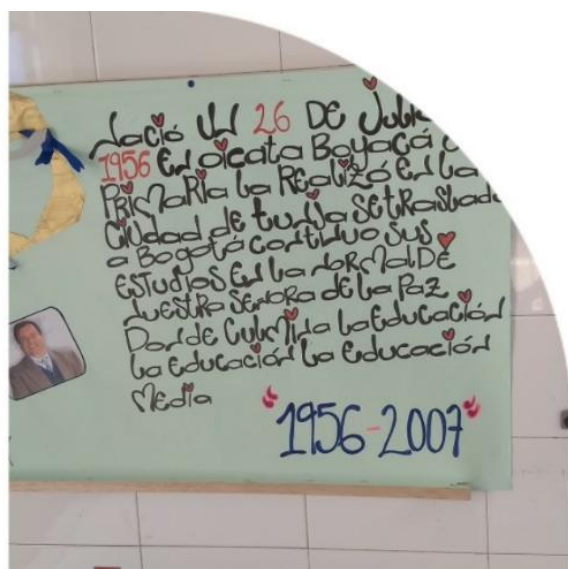 Nació un 26 DE Juli
1956 En oicata Boyacá
PRIMARIa La REalizó En La
Ciudad de tunja SE trasladó
a Bogotá continuo sus
EStudios En La NorMal DE
Nuestra SEñora de La Paz
Donde CulMina La Educación
La Educación La Educación
Media
"1956-2007"